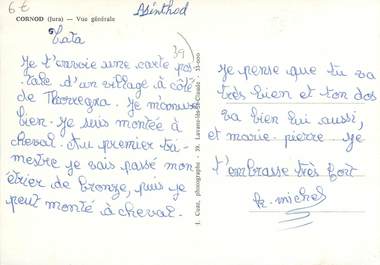 6€
Arinthod
CORNOD (Jura) — Vue générale
39
Tata
Je t'envoie une carte pos-
tale d'un village à côté
de Thoirette. Je m'amuse
bien. Je suis montée à
cheval. Au premier tri-
mestre je vais passé mon
étrier de bronze, puis je
peut monté à cheval.
je pense que tu va
très bien et ton dos
va bien lui aussi,
et marie-pierre je
t'embrasse très fort
michel